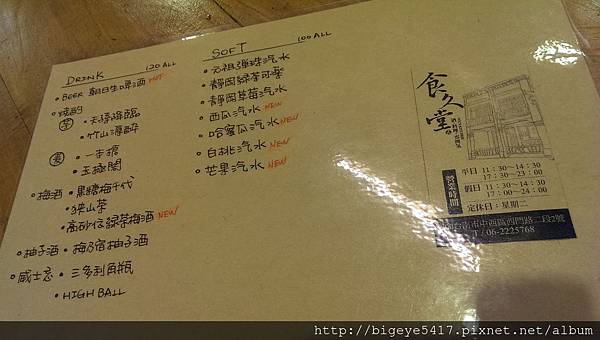 DRINK 120 ALL
BEER 朝日生啤酒 HOT
燒酎
芋 天孫降臨
竹山源醉
麦 一番札
玉極閣
梅酒 黒糖梅千代
狭山茶
高砂信録茶梅酒 NEW
柚子酒 梅乃宿柚子酒
威士忌 三多利角瓶
HIGH BALL
SOFT 100 ALL
元祖彈珠汽水
靜岡綠茶可樂
靜岡草莓汽水
西瓜汽水 NEW
哈蜜瓜汽水 NEW
白桃汽水 NEW
芒果汽水 NEW
食久堂
營業時間
平日 11:30~14:30
17:30~23:00
假日 11:30~14:30
17:00~24:00
定休日:星期二
台南市中西區西門路二段2號
T / 06-2225768
http://bigeye5417.pixnet.net/album